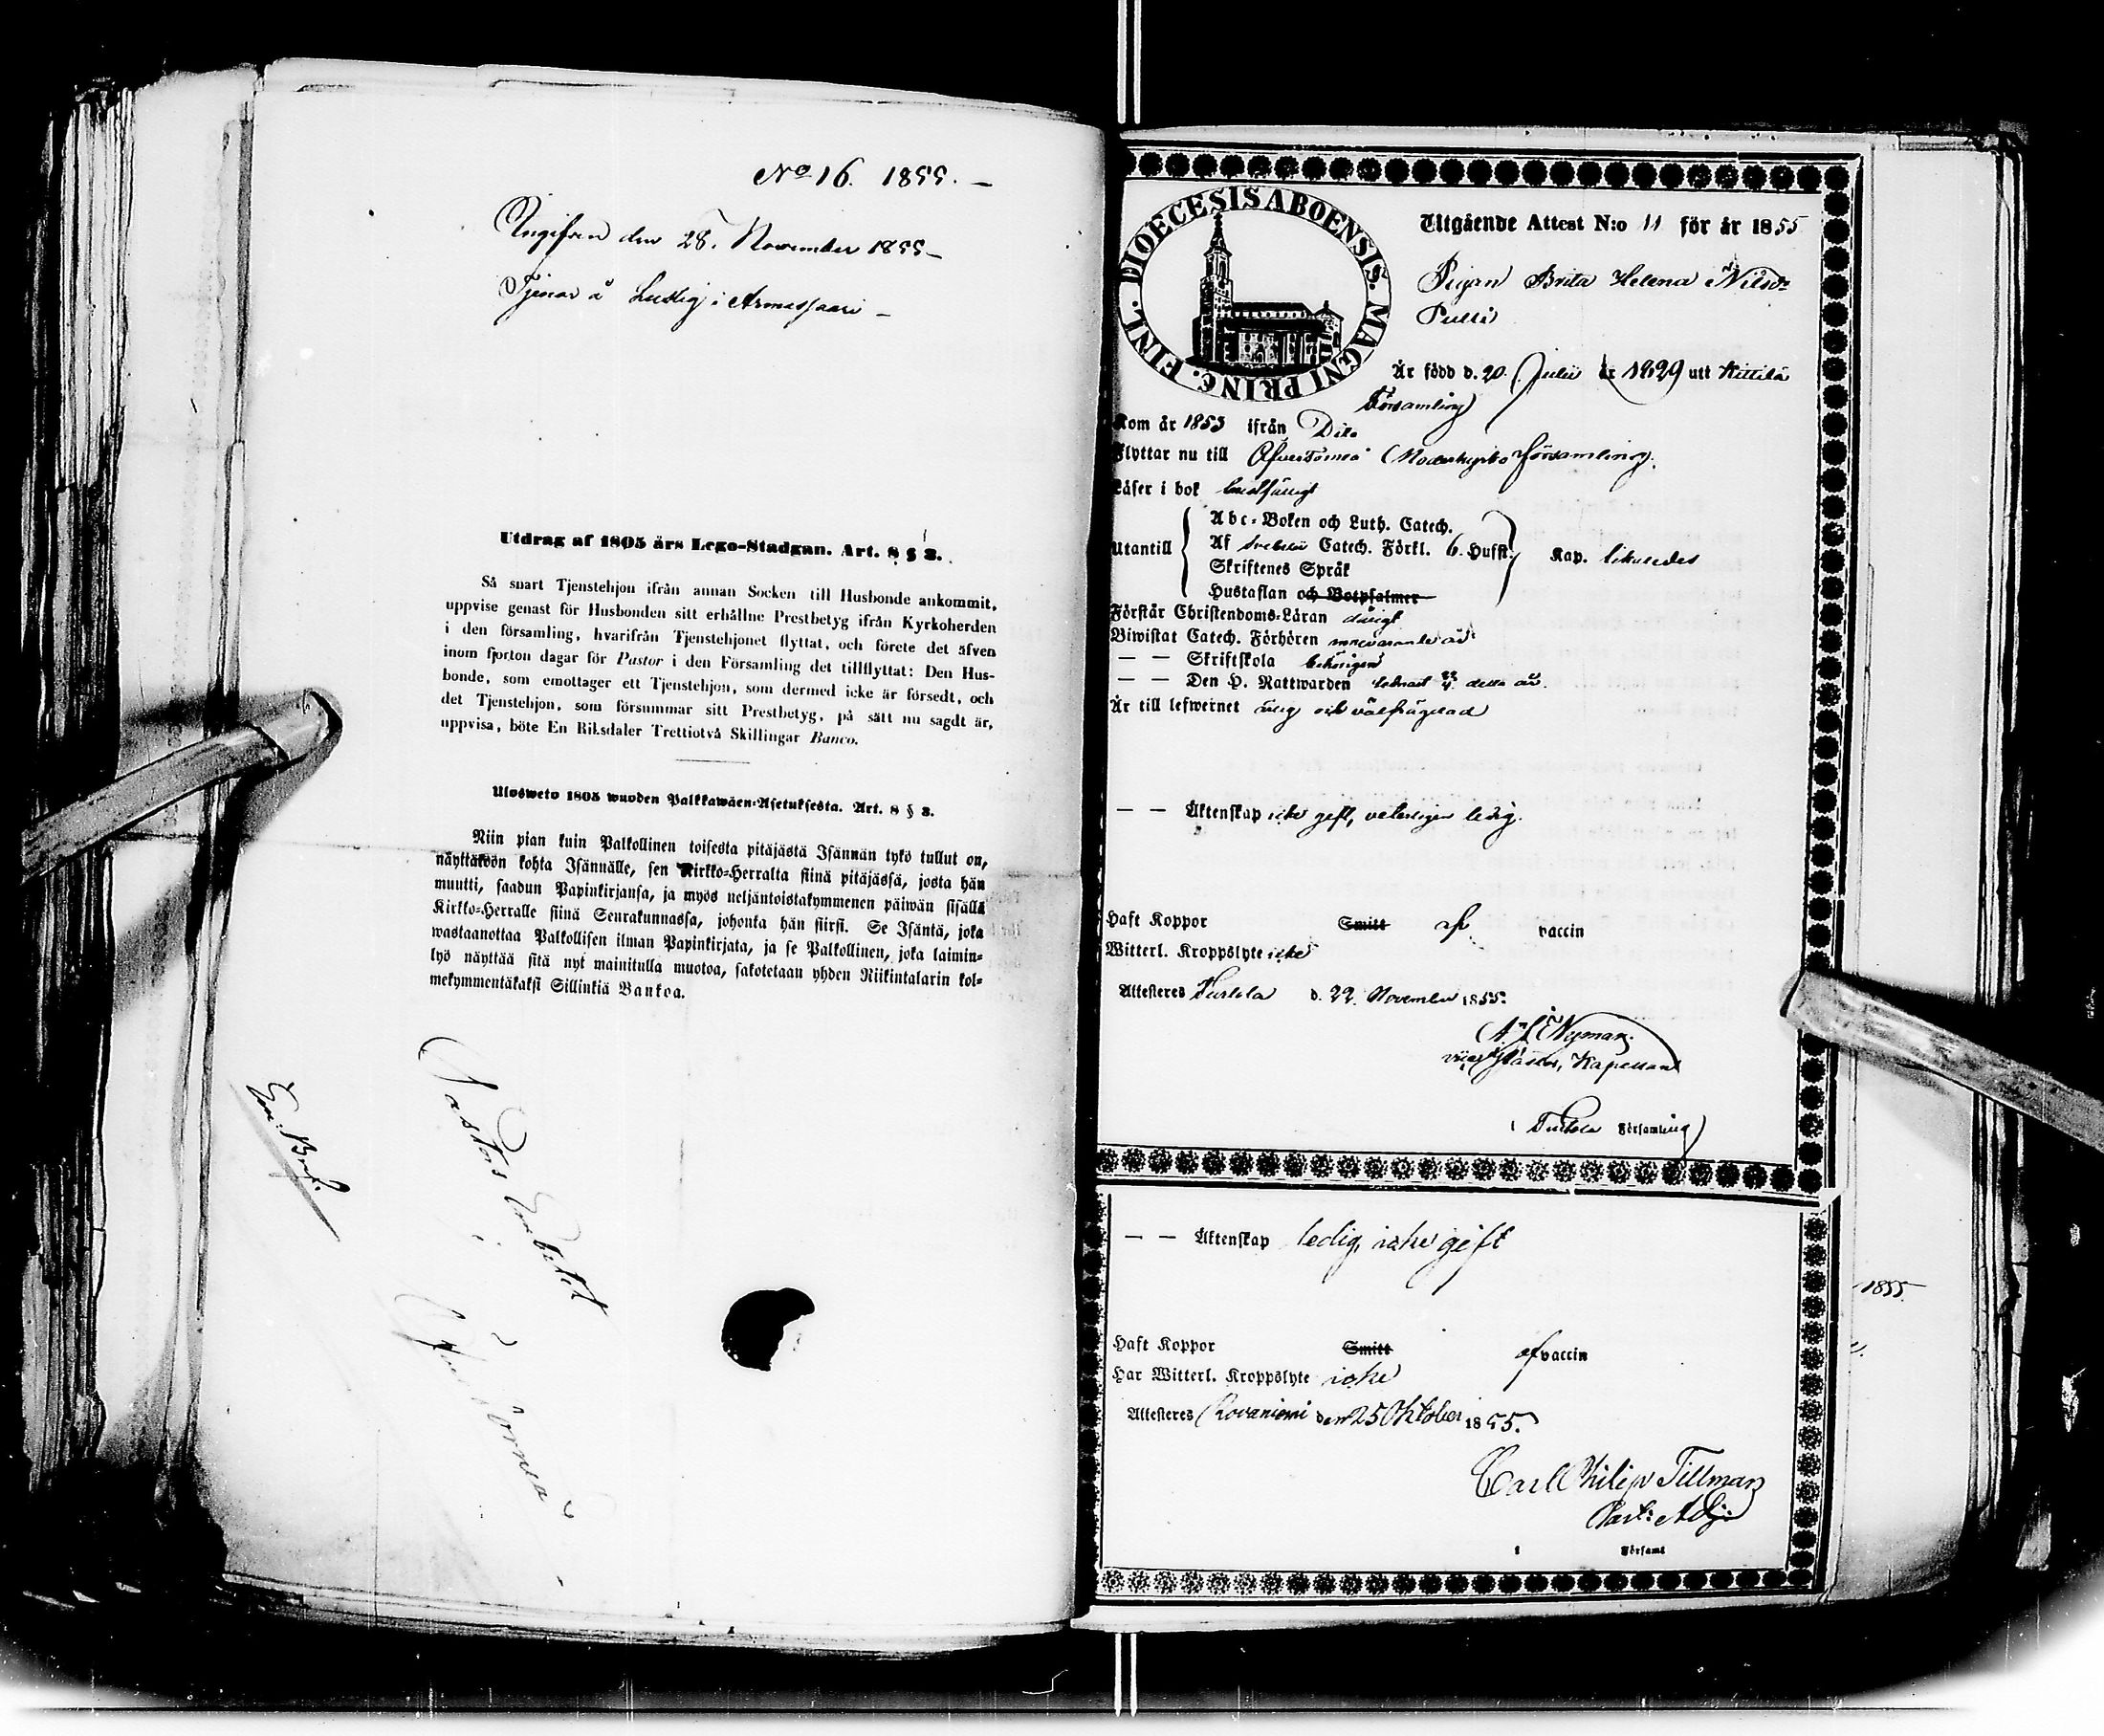 No 16. 1855. —
Ingifven den 28. November 1855 —
Tjenar å Lustig i Armassaari —
Utdrag af 1805 års Lego-Stadgan. Art. 8 § 3.
Så snart Tjenstehjon ifrån annan Socken till Husbonde ankommit,
uppvise genast för Husbonden sitt erhållne Prestbetyg ifrån Kyrkoherden
i den församling, hvarifrån Tjenstehjonet flyttat, och förete det äfven
inom fjorton dagar för Pastor i den Församling det tillflyttat: Den Hus-
bonde, som emottager ett Tjenstehjon, som dermed icke är försedt, och
det Tjenstehjon, som försummar sitt Prestbetyg, på sätt nu sagdt är,
uppvisa, böte En Riksdaler Trettiotvå Skillingar Banco.
Ulosweto 1805 wuoden Palkkawäen-Asetuksesta. Art. 8 § 3.
Niin pian kuin Palkollinen toisesta pitäjästä Isännän tykö tullut on,
näyttäköön kohta Isännälle, sen Kirkko-Herralta siinä pitäjässä, josta hän
muutti, saadun Papinkirjansa, ja myös neljäntoistakymmenen päiwän sisällä
Kirkko-Herralle siinä Seurakunnassa, johonka hän siirsi. Se Isäntä, joka
wastaanottaa Palkollisen ilman Papinkirjata, ja se Palkollinen, joka laimin-
lyö näyttää sitä nyt mainitulla muotoa, sakotetaan yhden Riikintalarin kol-
mekymmentäkaksi Sillinkiä Bankoa.
Pastors Embetet
i
Öfver Torneå
Em. Bref.
FINL. DIOECESIS ABOENSIS. MAGNI PRINC.
Utgående Attest N:o 11 för år 1855
Pigan Brita Helena Nils-
Pulli
Är född d. 20 Julii år 1829 utt Kittilä
Församling
Kom år 1853 ifrån Dito
Flyttar nu till Öfvertorneå Moderkyrko församling.
Läser i bok
Abc-Boken och Luth. Catech.
Utantill Af Svebilii Catech. Förkl. 6. Hufst. Kap. likaledes
Skriftenes Språk
Hustaflan och Botpsalmer
Förstår Christendoms-Läran
Biwistat Catech. Förhören innevarande år
— — Skriftskola behörigen
— — Den H. Nattwarden detta år.
Är till lefwernet ärlig och välfrägdad
— — Äktenskap icke gift, veterligen ledig.
Haft Koppor Smitt af vaccin
Witterl. Kroppslyte icke
Attesteres Turtola d. 22. November 1855.
Nyman.
vice Pastor, Kapellan
i Turtola Församling
— — Äktenskap ledig, icke gift
1855.
Haft Koppor Smitt af vaccin
Har Witterl. Kroppslyte icke
Attesteres Rovaniemi den 25 Oktober 1855.
Carl Philip Tillman
Past: Adj:
i Församl